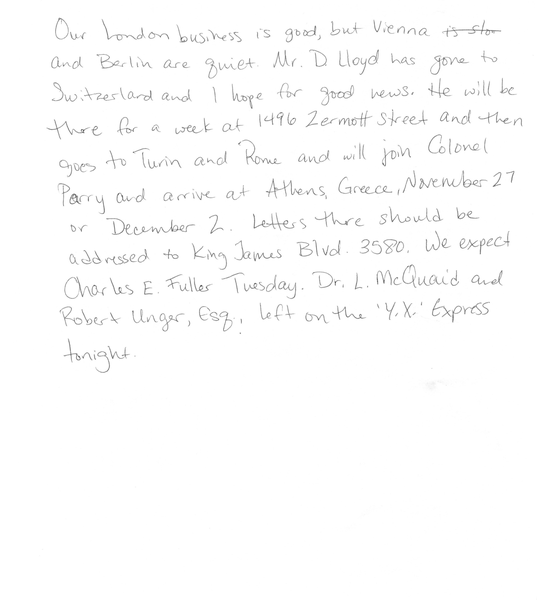 Our London business is good, but Vienna
and Berlin are quiet. Mr. D. Lloyd has gone to
Switzerland and I hope for good news. He will be
there for a week at 1496 Zermott Street and then
goes to Turin and Rome and will join Colonel
Parry and arrive at Athens, Greece, November 27
or December 2. Letters there should be
addressed to King James Blvd. 3580. We expect
Charles E. Fuller Tuesday. Dr. L. McQuaid and
Robert Unger, Esq., left on the 'Y.X.' Express
tonight.